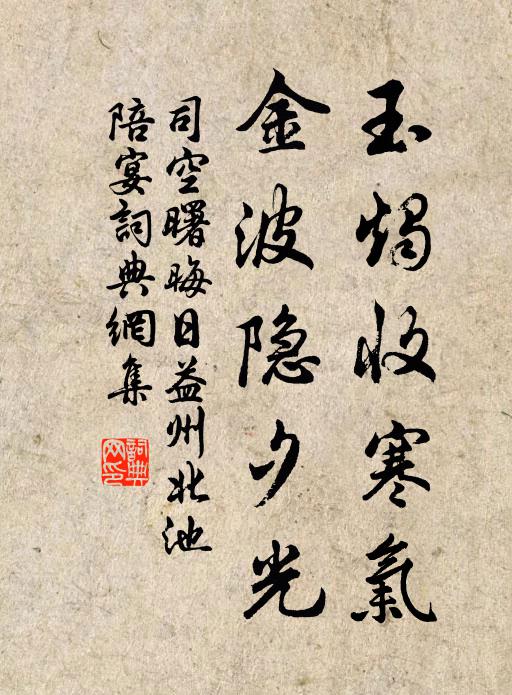 玉燭收寒氣
金波隱夕光
司空曙晦日益州北池
陪宴詞典網集
詞典网印